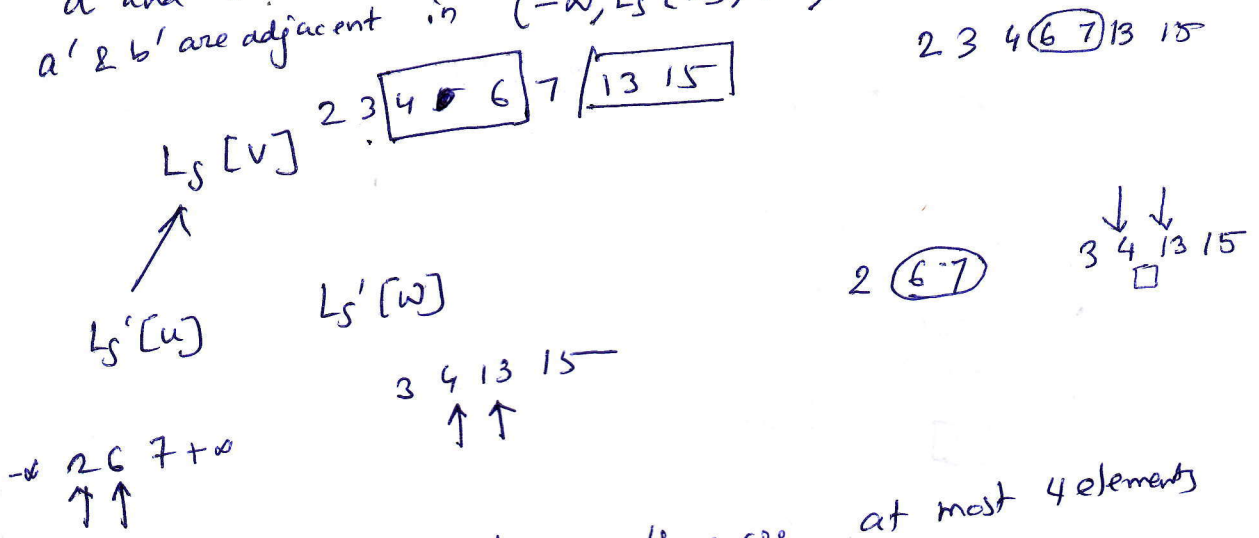 a' & b' are adjacent in (-∞, Ls
2 3 4 6 7 13 15
2 3 4 6 7 13 15
Ls [v]
3 4 13 15
2 6 7
Ls' [w]
Ls' [u]
3 4 13 15
-∞ 2 6 7 +∞
at most 4 elements